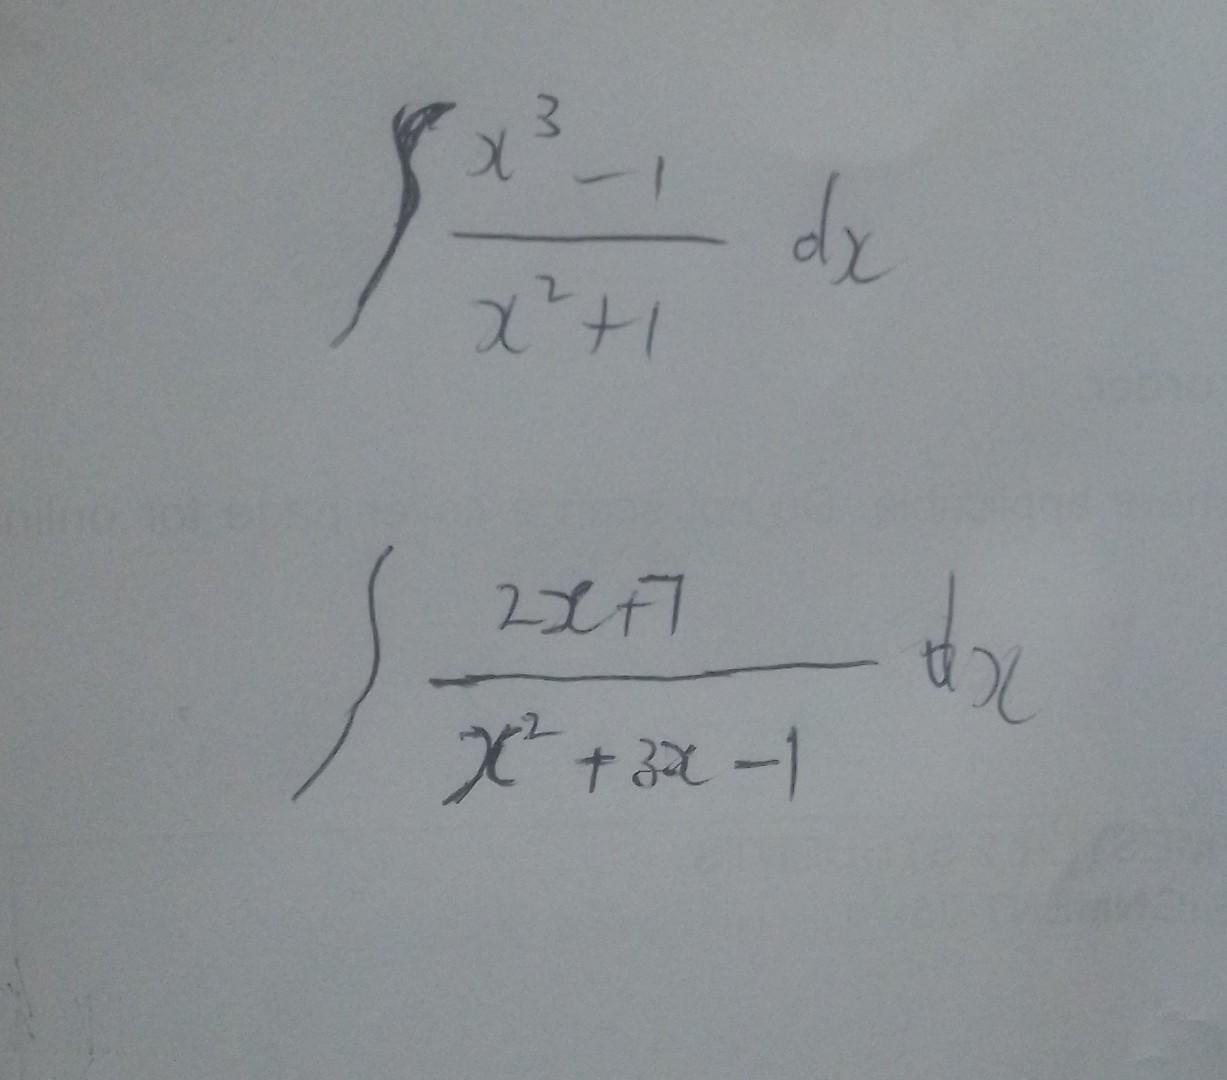 ∫ x³ − 1 / x² + 1 dx
∫ 2x + 7 / x² + 3x − 1 dx